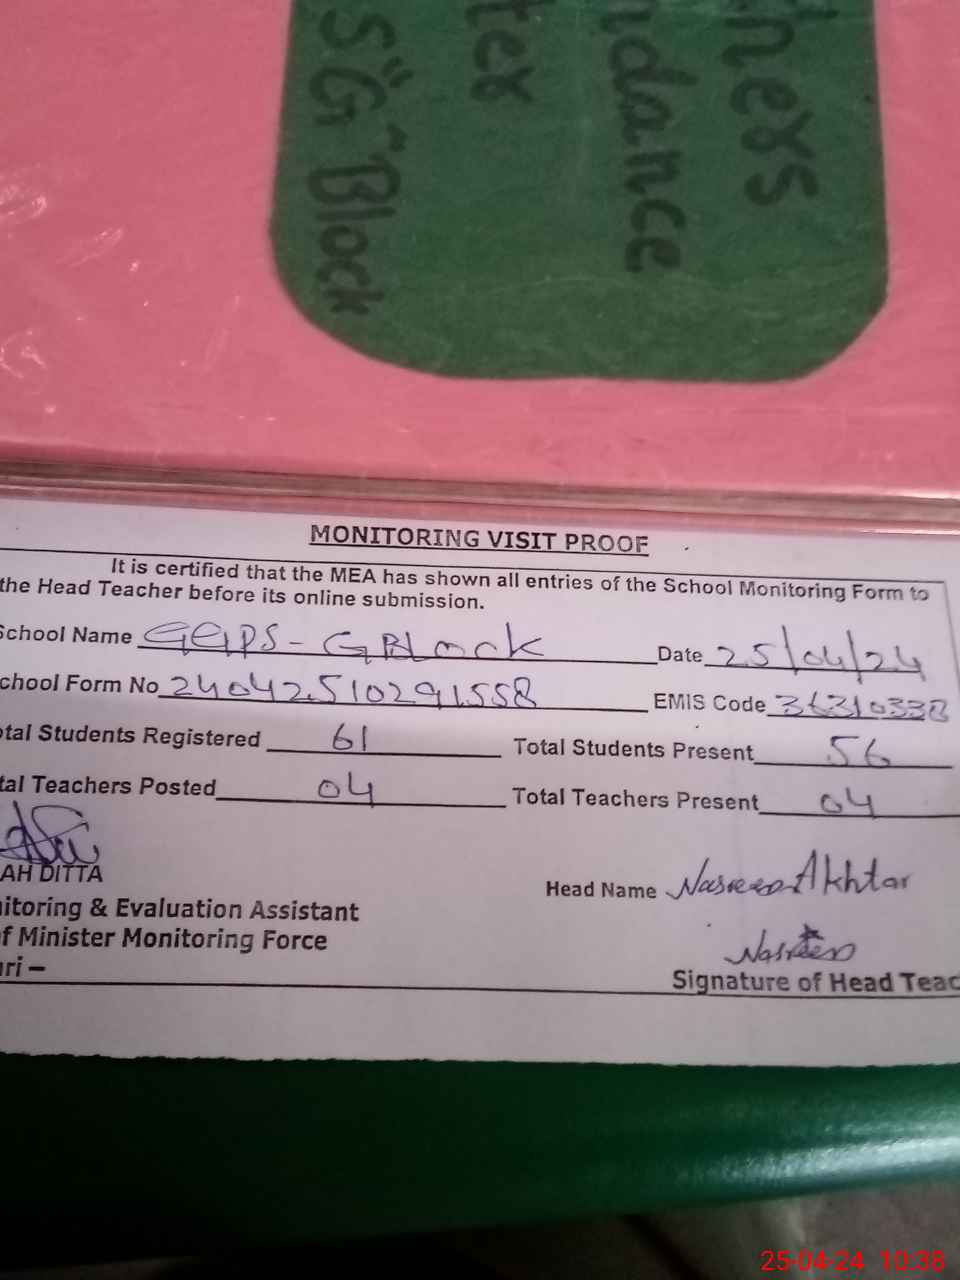 hers
ndance
ter
S "G" Block
MONITORING VISIT PROOF
It is certified that the MEA has shown all entries of the School Monitoring Form to
the Head Teacher before its online submission.
School Name GGPS - G Block Date 25/04/24
chool Form No 24042510291558 EMIS Code 36310338
otal Students Registered 61 Total Students Present 56
tal Teachers Posted 04 Total Teachers Present 04
AH DITTA
Head Name Nasreen Akhtar
nitoring & Evaluation Assistant
f Minister Monitoring Force
Nasreen
ri –
Signature of Head Teac
25-04-24 10:38